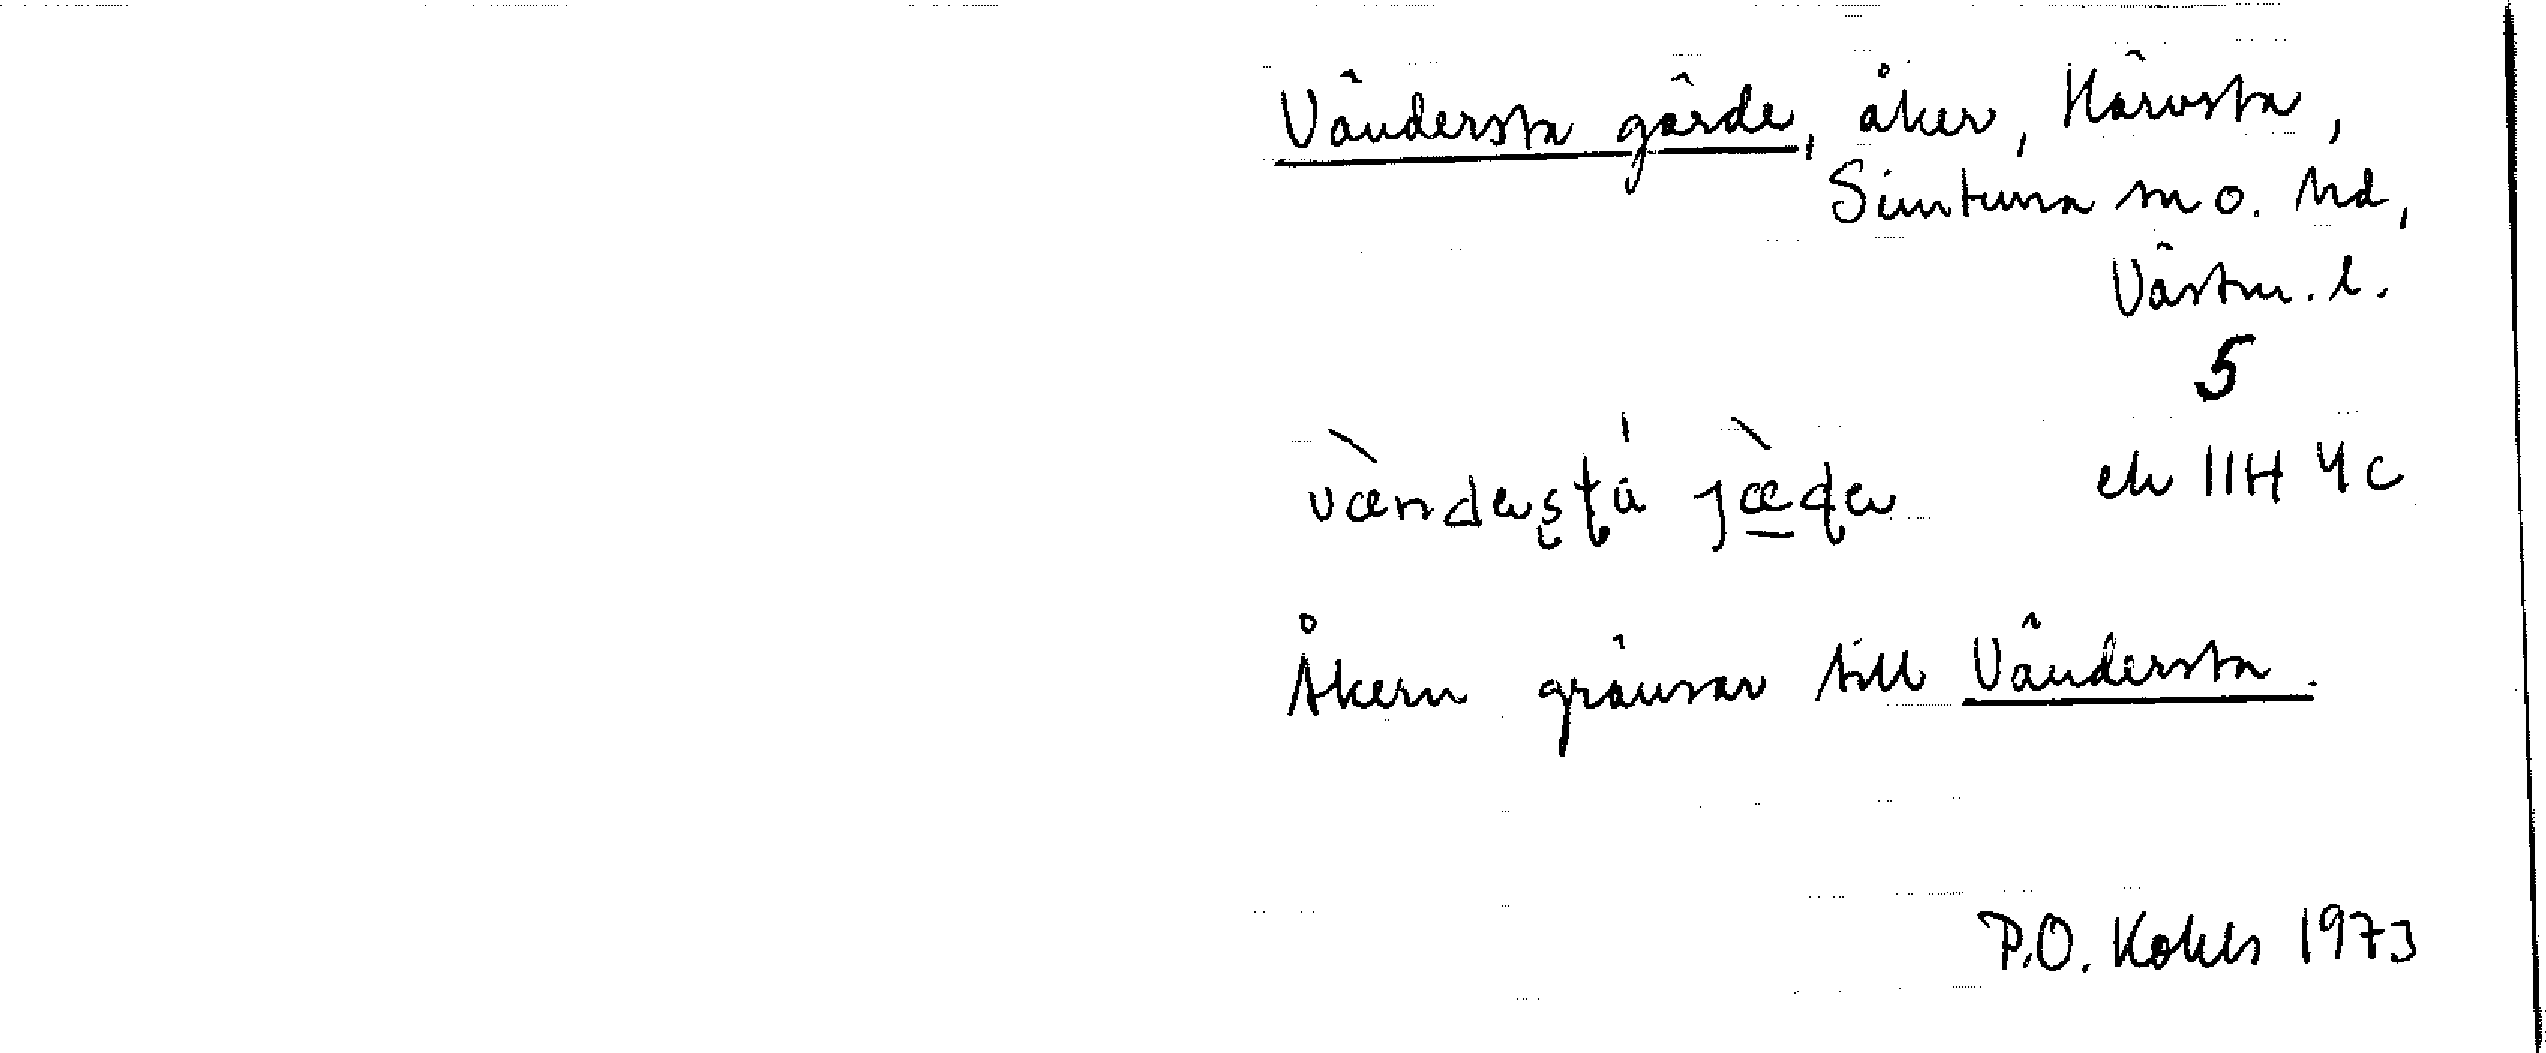 Vändersta gärde, åker, Härvsta,
Simtuna sn o. hd,
Västm. l.
5
ek 11H 4c
Åkern gränsar till Vändersta.
P.O. Kohls 1973